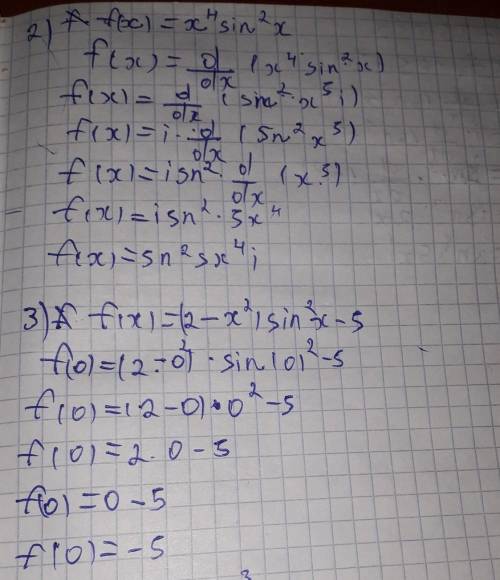 2) f(x) = x⁴sin²x
f(x) = d/dx (x⁴sin²x)
f(x) = d/dx (sn²·x⁵i)
f(x) = i · d/dx (sn²x⁵)
f(x) = isn² · d/dx (x⁵)
f(x) = isn² · 5x⁴
f(x) = sn²5x⁴i
3) f(x) = (2 - x²) sin²x - 5
f(0) = (2 - 0²) · sin(0)² - 5
f(0) = (2 - 0) · 0² - 5
f(0) = 2 · 0 - 5
f(0) = 0 - 5
f(0) = -5